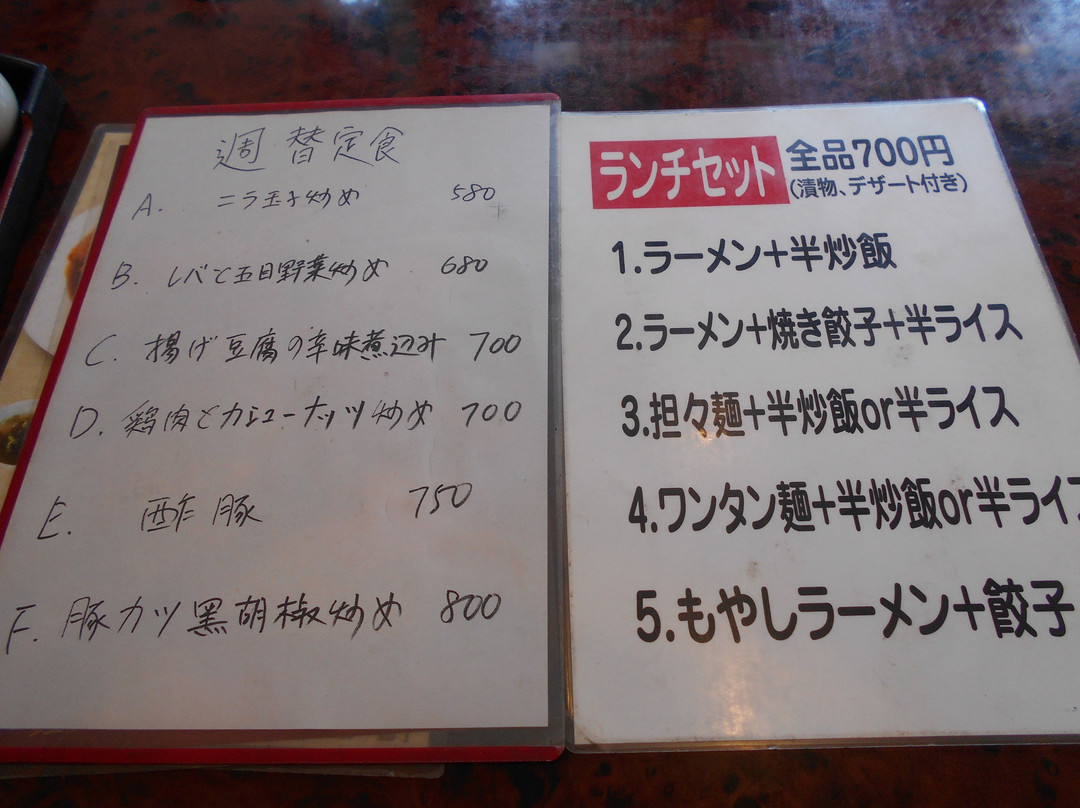 週替定食
A. ニラ玉子炒め 580
B. レバと五目野菜炒め 680
C. 揚げ豆腐の辛味煮込み 700
D. 鶏肉とカシューナッツ炒め 700
E. 酢豚 750
F. 豚カツ黒胡椒炒め 800
ランチセット 全品700円
(漬物、デザート付き)
1.ラーメン+半炒飯
2.ラーメン+焼き餃子+半ライス
3.担々麺+半炒飯or半ライス
4.ワンタン麺+半炒飯or半ライ
5.もやしラーメン+餃子